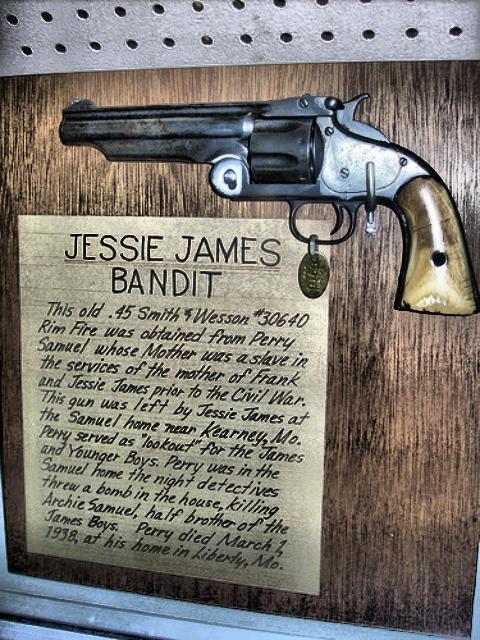 JESSIE JAMES
BANDIT
This old .45 Smith & Wesson #30640
Rim Fire was obtained from Perry
Samuel whose Mother was a slave in
the services of the mother of Frank
and Jessie James prior to the Civil War.
This gun was left by Jessie James at
the Samuel home near Kearney, Mo.
Perry served as "lookout" for the James
and Younger Boys. Perry was in the
Samuel home the night detectives
threw a bomb in the house, killing
Archie Samuel, half brother of the
James Boys. Perry died March
1938, at his home in Liberty, Mo.